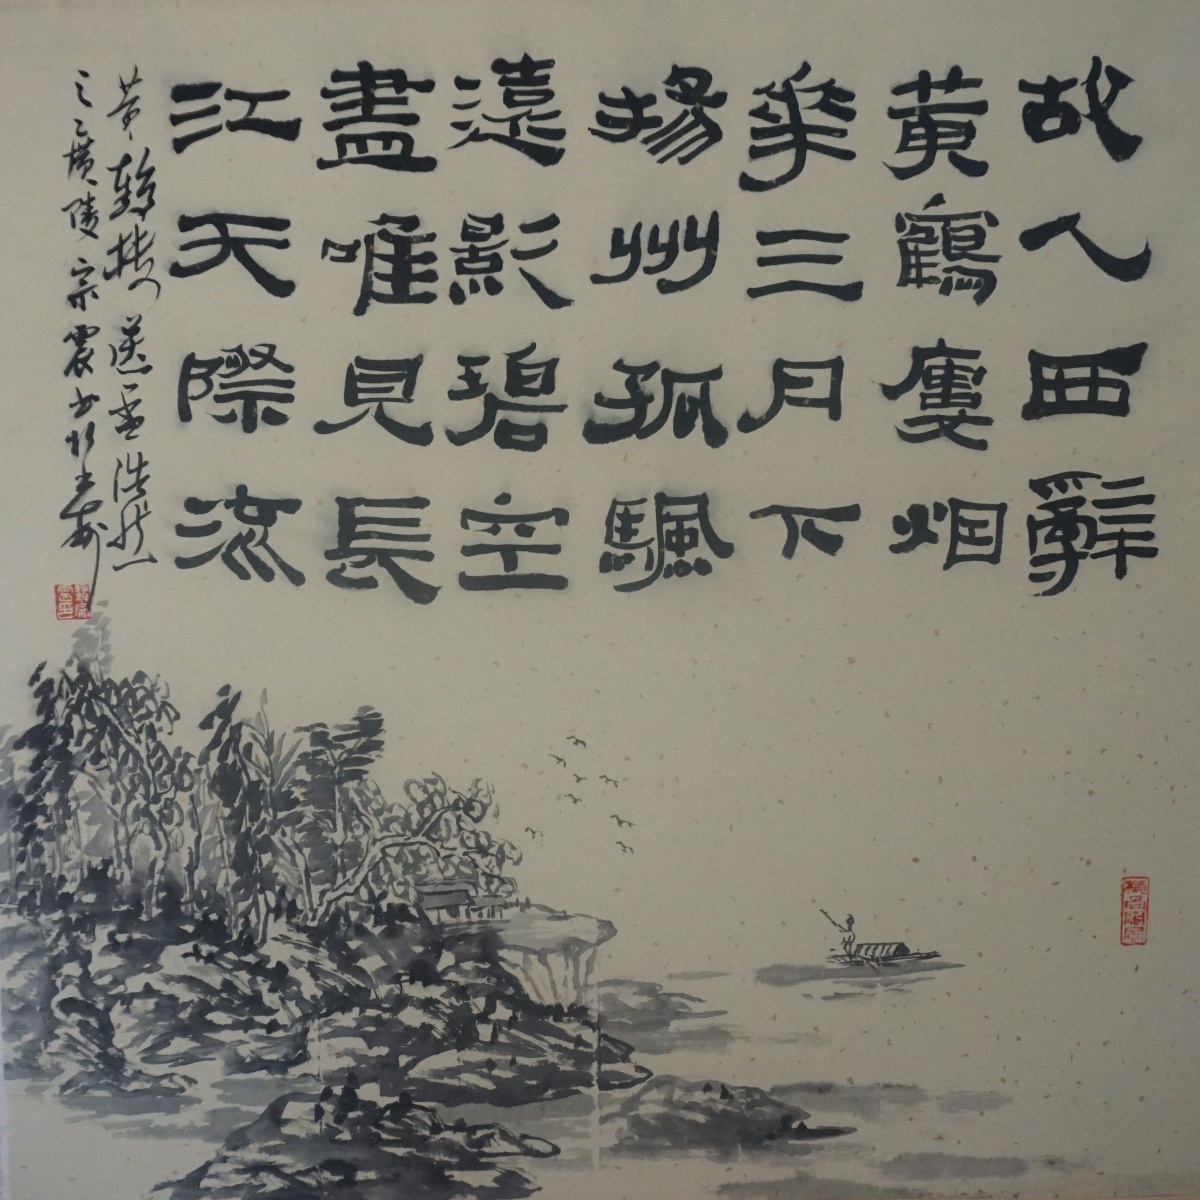 故人西辭
黃鶴樓烟
華三月下
揚州孤颿
遠影碧空
盡唯見長
江天際流
黃鶴樓送孟浩然
之廣陵 宗震書於